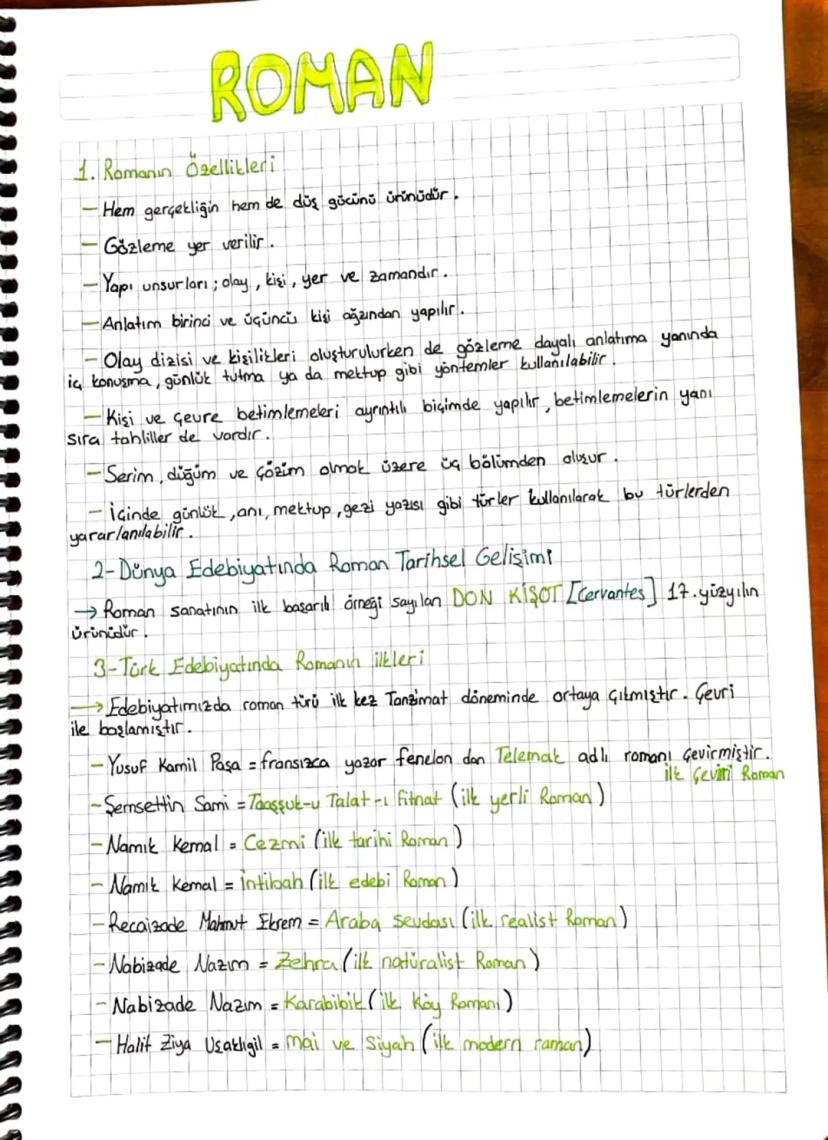 ROMAN
1. Romanın Özellikleri
— Hem gerçekliğin hem de düş gücünü ürünüdür.
— Gözleme yer verilir.
— Yapı unsurları; olay, kişi, yer ve zamandır.
— Anlatım birinci ve üçüncü kişi ağzından yapılır.
— Olay dizisi ve kişilikleri oluşturulurken de gözleme dayalı anlatıma yanında
iç konuşma, günlük tutma ya da mektup gibi yöntemler kullanılabilir.
— Kişi ve çevre betimlemeleri ayrıntılı biçimde yapılır, betimlemelerin yanı
sıra tahliller de vardır.
— Serim, düğüm ve çözüm olmak üzere üç bölümden oluşur.
— İçinde günlük, anı, mektup, gezi yazısı gibi türler kullanılarak bu türlerden
yararlanılabilir.
2- Dünya Edebiyatında Roman Tarihsel Gelişimi
→ Roman sanatının ilk başarılı örneği sayılan DON KİŞOT [Cervantes] 17. yüzyılın
ürünüdür.
3- Türk Edebiyatında Romanın ilkleri
→ Edebiyatımızda roman türü ilk kez Tanzimat döneminde ortaya çıkmıştır. Çevri
ile başlamıştır.
— Yusuf Kamil Paşa = fransızca yazar fenelon dan Telemak adlı romanı çevirmiştir.
ilk Çeviri Roman
— Şemsettin Sami = Taaşşuk-u Talat-ı fitnat (ilk yerli Roman)
— Namık Kemal = Cezmi (ilk tarihi Roman)
— Namık Kemal = İntibah (ilk edebi Roman)
— Recaizade Mahmut Ekrem = Araba sevdası (ilk realist Roman)
— Nabizade Nazım = Zehra (ilk natüralist Roman)
— Nabizade Nazım = Karabibik (ilk Köy Romanı)
— Halit Ziya Uşaklıgil = mai ve Siyah (ilk modern roman)